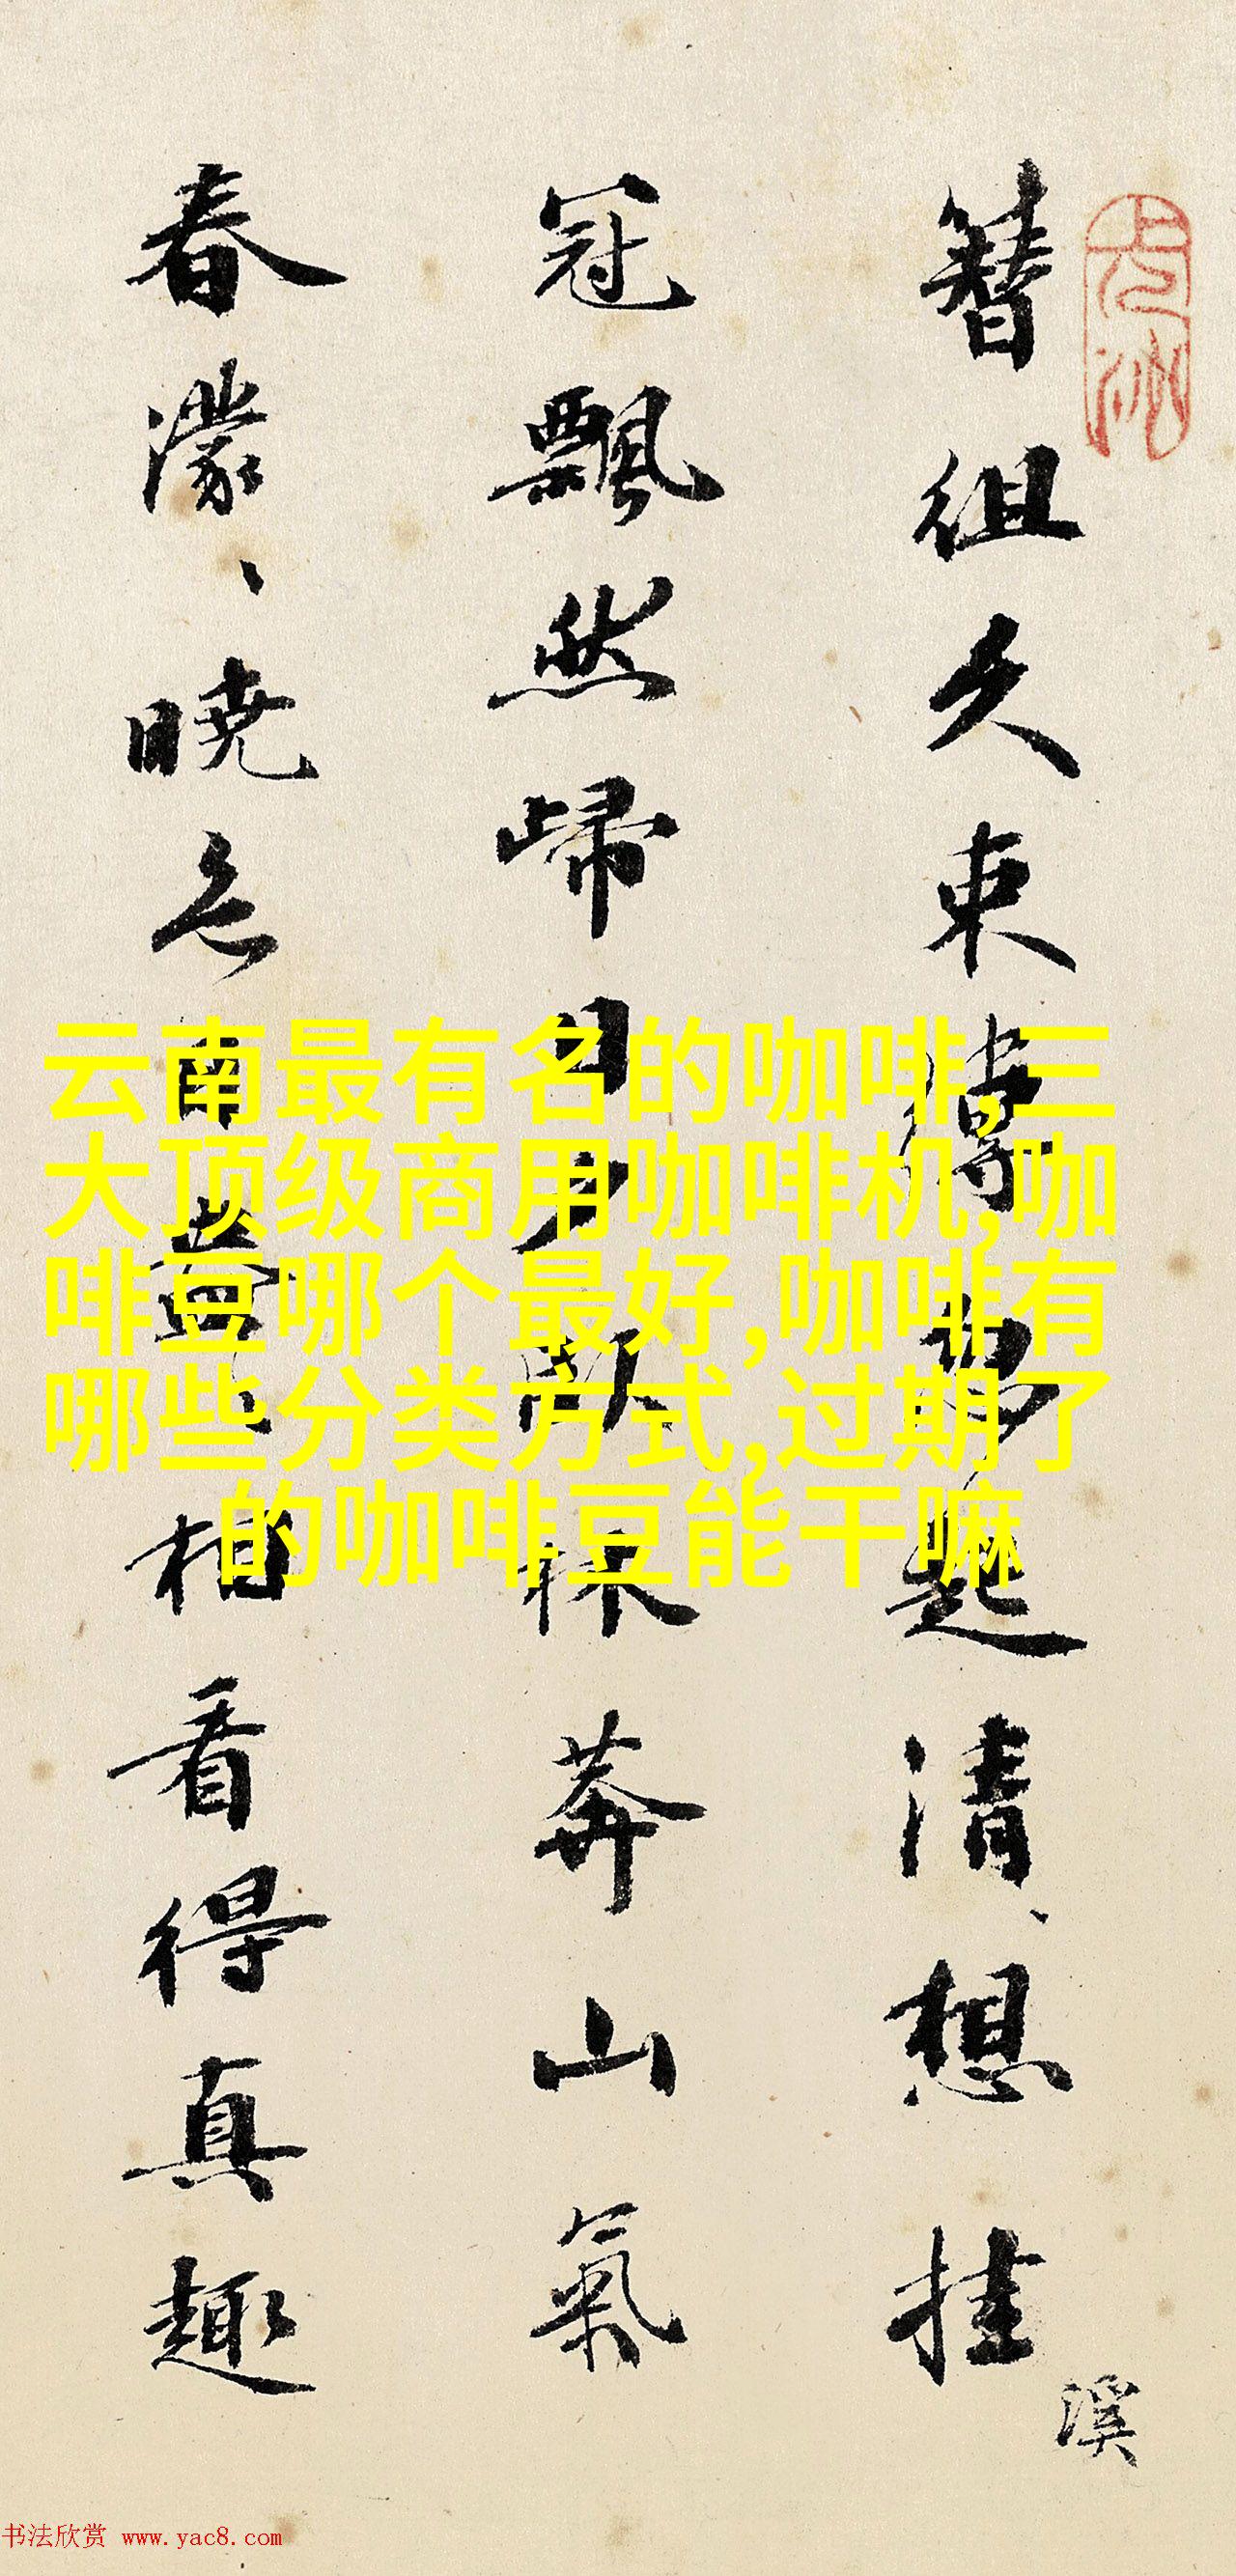 簪组久束缚夙起清、想挂
溪
冠飘然歸日夕臥林莽山氣
春濛、曉色南益、相看得真趣
云南最有名的咖啡,三
大顶级商用咖啡机,咖
啡豆哪个最好,咖啡有
哪些分类方式,过期了
的咖啡豆能干嘛
书法欣赏 www.yac8.com